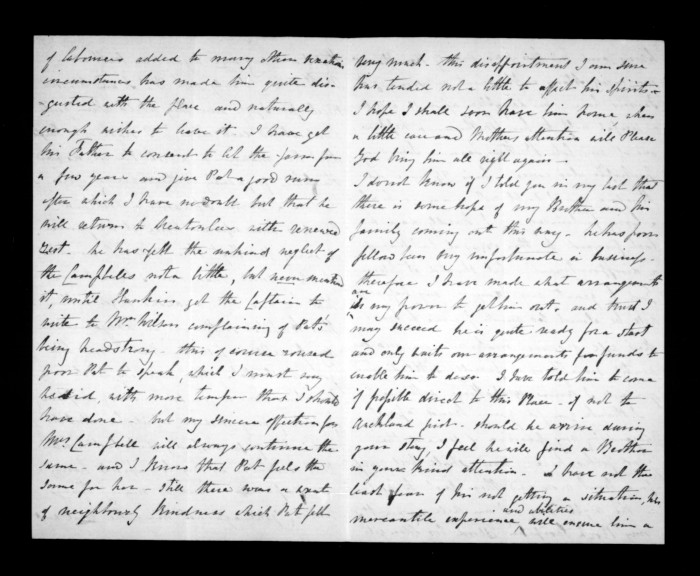 of labourers added to many other vexatious
circumstances has made him quite dis-
gusted with the place and naturally
enough wishes to leave it. I have got
his Father to consent to let the farm for
a few years and give Pat a good run
after which I have no doubt but that he
will return to with renewed
zest. he has felt the unkind neglect of
the Campbells not a little, but never mentioned
it, until Hawkins got the Captain to
write to Mr Wilson complaining of Pat's
being headstrong. this of course roused
poor Pat to speak, which I must say
he did, with more temper than I should
have done. but my sincere affection for
Mrs Campbell will always continue the
same - and I know that Pat feels the
same for her - Still there was a want
of neighbourly Kindness which Pat felt
very much - this disappointment I am sure
has tended not a little to affect his Spirits -
I hope I shall soon have him home when
a little care and Mothers attention will Please
God bring him all right again -
I do not know if I told you in my last that
there is some hope of my Brother and his
family coming out this way - he has poor
fellow been very unfortunate in business -
therefore I have made what arrangements
are in my power to get him out, and trust I
may succeed he is quite ready for a start
and only waits our arrangements for funds to
enable him to do so I have told him to come
if possible direct to this Place - if not to
Auckland first - should he arrive during
your stay, I feel he will find a Brother
in your kind attention - I have not the
least fear of his not getting a situation, his
mercantile experience and abilities will ensure him a